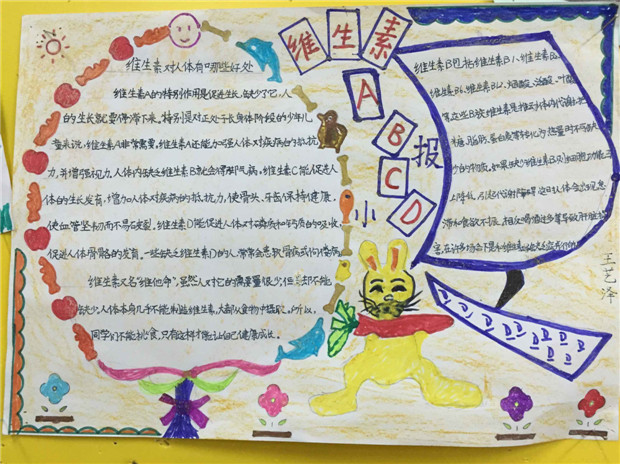 维生素
A
B
C
D
小
报
维生素对人体有哪些好处
维生素A的特别作用是促进生长,缺少了它,人
的生长就要停滞不来,特别是对正处于长身体阶段的少年儿
童来说,维生素A非常需要,维生素A还能加强人体对疾病的抵抗
力,并增强视力,人体内缺乏维生素B就会得脚气病,维生素C能促进人
体的生长发育,增加人体对疾病的抗抗力,使骨头、牙齿保持健康,
使血管坚韧而不易破裂,维生素D能促进人体对磷质和钙质的吸收,
促进人体骨骼的发育,一些缺乏维生素D的人,常常会患软骨病或佝偻病
维生素又名"维他命",虽然人对它的需要量很少,但却不能
缺少,人体本身几乎不能制造维生素,大都从食物中摄取,所以,
同学们不能挑食,只有这样才能让自己健康成长。
维生素B包括维生素B1、维生素B2、
维生素B6、维生素B12、烟酸、泛酸、叶酸
等,这些B族维生素是推动体内代谢,把
糖、脂肪、蛋白质等转化成热量时不可缺
少的物质,如果缺少维生素B,则细胞功能马
上降低,引起代谢障碍,这时人体会出现怠
滞和食欲不振,相反喝酒过多等导致肝脏损
害,在许多场合下是和维生素缺乏症并行的
王艺泽